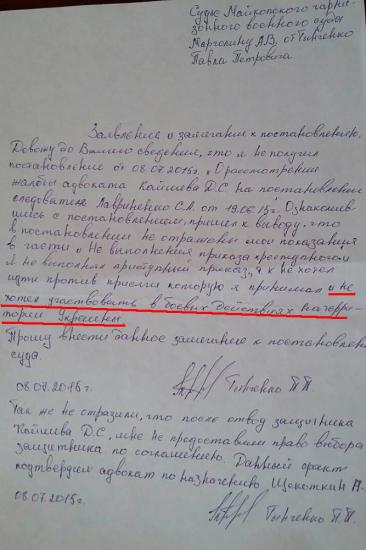 Судье Майкопского гарни-
зонного военного суда
Марголину А.В. от Тинченко
Павла Петровича
Заявление и замечание к постановлению.
Довожу до Вашего сведения, что я не получил
постановление от 08.07.2015г. "О рассмотрении
жалобы адвоката Каишева Д.С на постановление
следователя Лавриненко С.А. от 19.06.15г." Ознакомив-
шись с постановлением, пришел к выводу, что
в постановлении не отражены мои показания
в части "Не выполнения приказа преступного"
Я не выполнял преступный приказ, т.к не хотел
идти против присяги которую я принимал и не
хотел участвовать в боевых действиях на терри-
тории Украины.
Прошу внести данное замечание к постановлению
суда.
08.07.2015г. Тинченко П.П.
Так же не отразили, что после отвод защитника
Каишева Д.С, мне не предоставили право выбора
защитника по соглашению. Данный факт
подтвердил адвокат по назначению Щекоткин А.
08.07.2015г. Тинченко П.П.